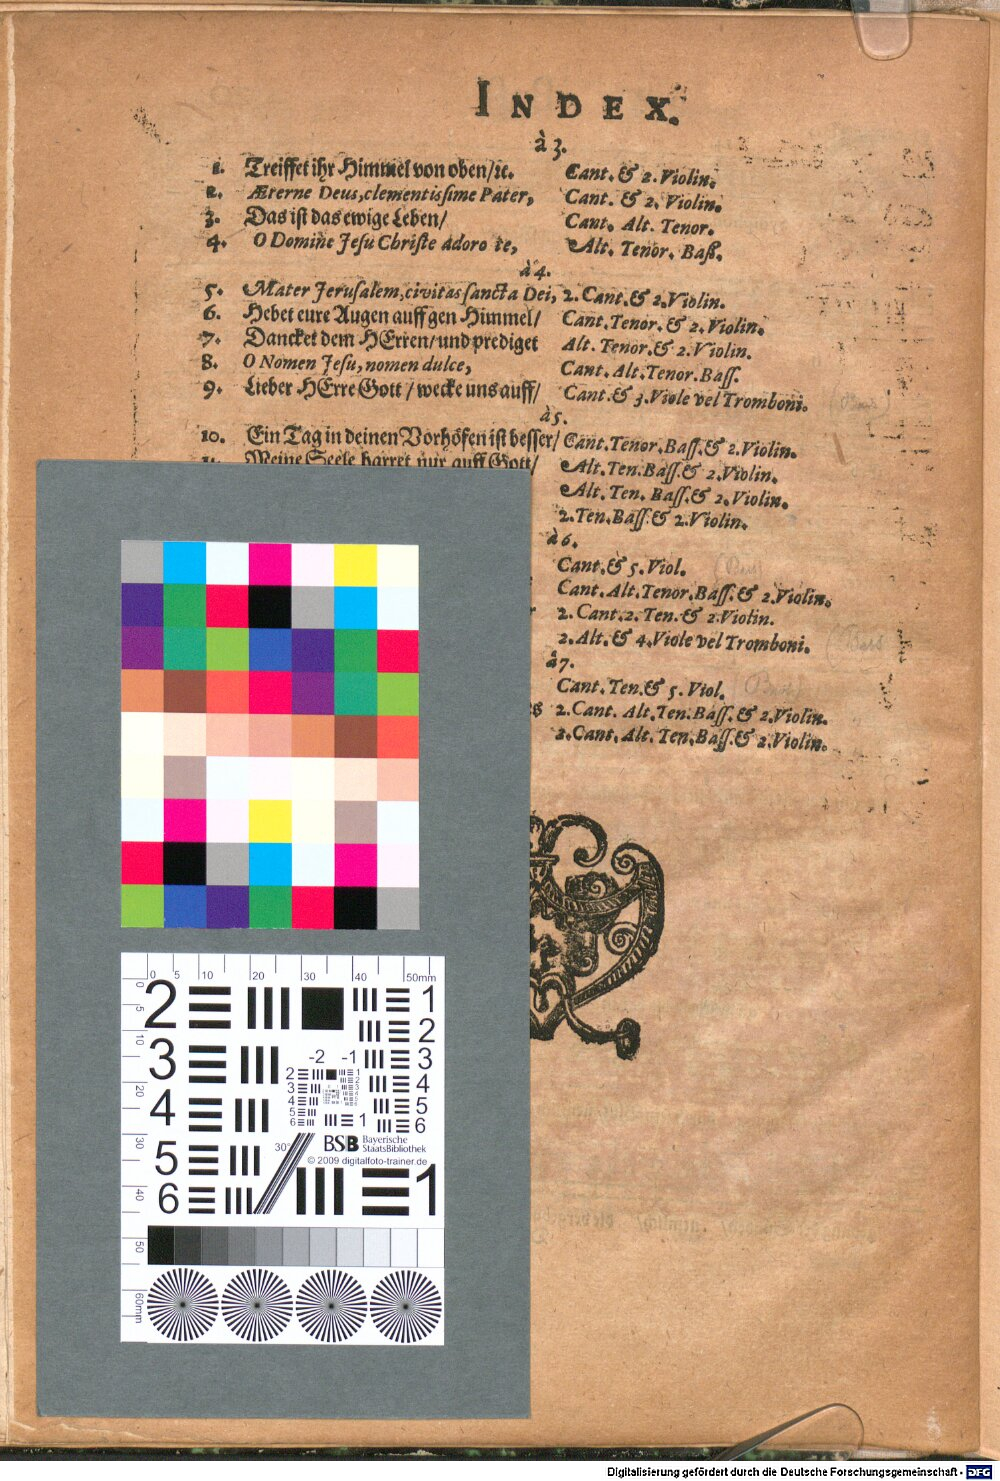 INDEX.
à 3.
1. Treiffet ihr Himmel von oben/ ꝛc. Cant. & 2. Violin.
2. Æterne Deus, clementissime Pater, Cant. & 2. Violin.
3. Das ist das ewige Leben/ Cant. Alt. Tenor.
4. O Domine Jesu Christe adoro te, Alt. Tenor. Baß.
à 4.
5. Mater Jerusalem, civitas sancta Dei, 2. Cant. & 2. Violin.
6. Hebet eure Augen auff gen Himmel/ Cant. Tenor. & 2. Violin.
7. Dancket dem HErren/ und prediget Alt. Tenor. & 2. Violin.
8. O Nomen Jesu, nomen dulce, Cant. Alt. Tenor. Bass.
9. Lieber HErre Gott/ wecke uns auff/ Cant. & 3. Viole vel Tromboni.
à 5.
10. Ein Tag in deinen Vorhöfen ist besser/ Cant. Tenor. Bass. & 2. Violin.
11. Meine Seele harret nur auff Gott/ Alt. Ten. Bass. & 2. Violin.
Alt. Ten. Bass. & 2. Violin.
2. Ten. Bass. & 2. Violin.
à 6.
Cant. & 5. Viol.
Cant. Alt. Tenor. Bass. & 2. Violin.
2. Cant. 2. Ten. & 2. Violin.
2. Alt. & 4. Viole vel Tromboni.
à 7.
Cant. Ten. & 5. Viol.
2. Cant. Alt. Ten. Bass. & 2. Violin.
2. Cant. Alt. Ten. Bass. & 2. Violin.
0 5 10 20 30 40 50mm
0 5 10 20 30 40 50 60mm
2 1
2
3 3
4 4
5 5
6 6
-2 -1
2 1
3
4
5
6 1
30°
BSB Bayerische
StaatsBibliothek
© 2009 digitalfoto-trainer.de
1
Digitalisierung gefördert durch die Deutsche Forschungsgemeinschaft - DFG